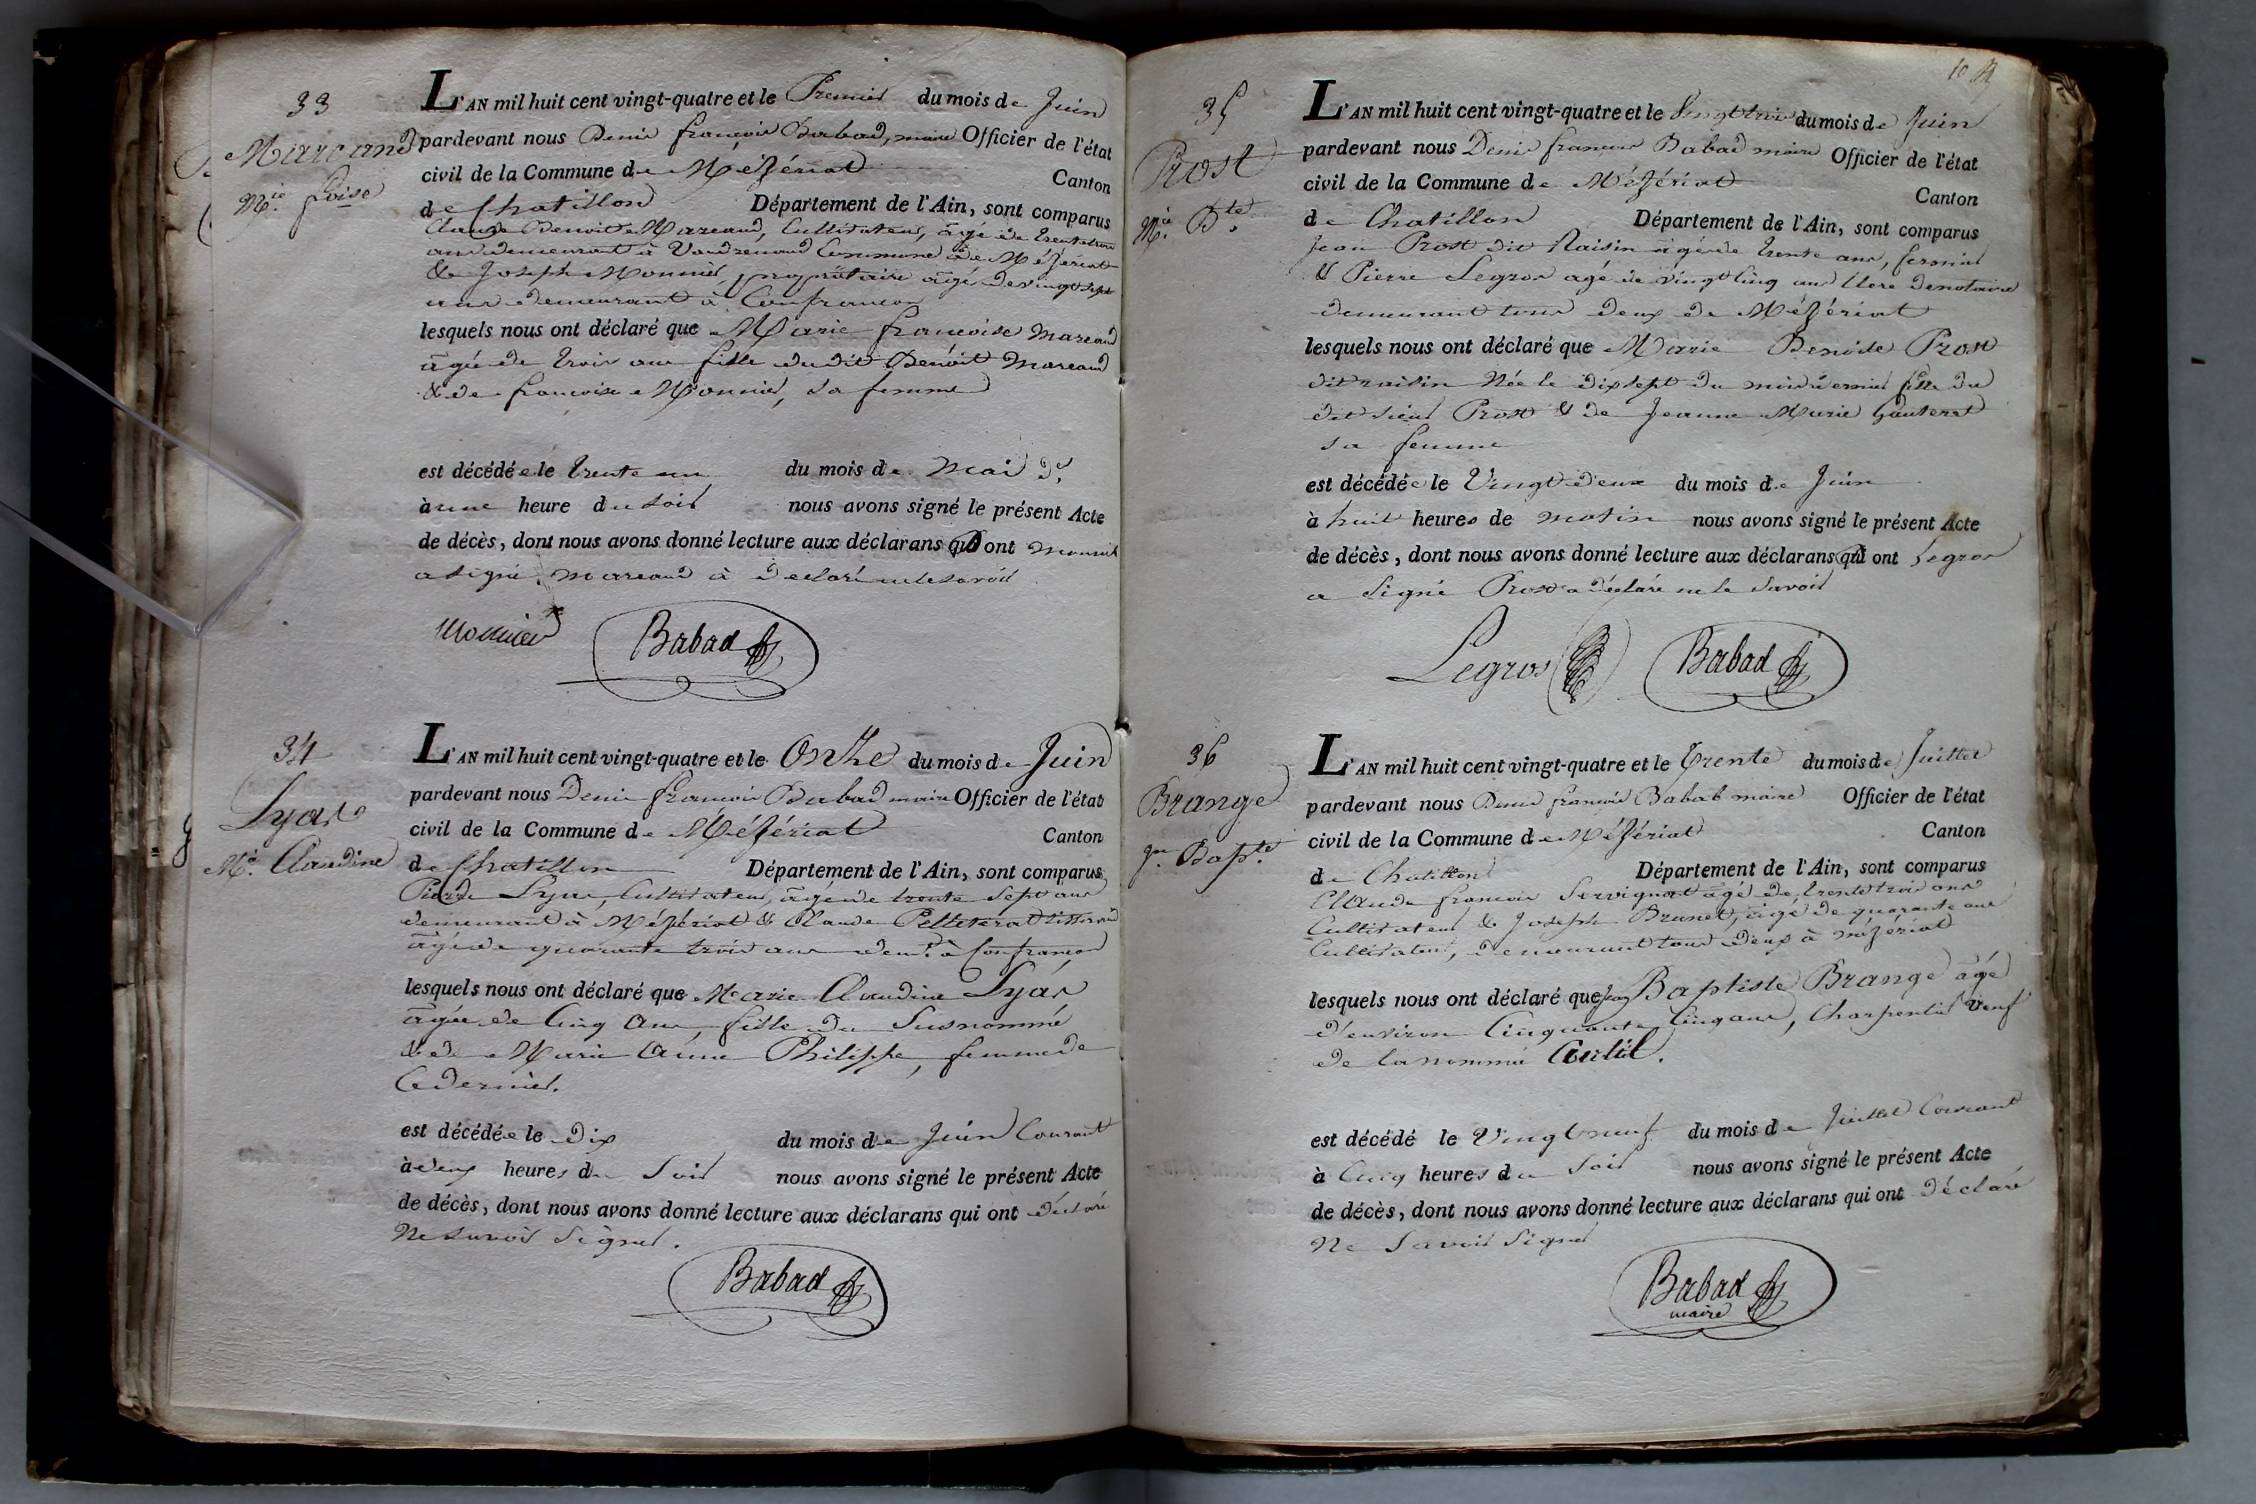 33
Marcand
Mie. foise
L'AN mil huit cent vingt-quatre et le Premier du mois de Juin
pardevant nous Denis françois Babad, maire Officier de l'état
civil de la Commune de Mézériat Canton
de Chatillon Département de l'Ain, sont comparus
Claude Benoit Marcand, Cultivateur, âgé de trente trois
ans demeurant à Vandrenoud Commune de Mézériat
& Joseph Monnier, propriétaire âgé de vingt sept
ans demeurant à Confrancon
lesquels nous ont déclaré que Marie françoise Marcand
âgée de trois ans fille du dit Benoit Marcand
& de françoise Monnier, sa femme
est décédée le trente un du mois de Mai dr.
à une heure du soir nous avons signé le présent Acte
de décès, dont nous avons donné lecture aux déclarans qui ont Monnier
a signé, Marcand a déclaré ne le savoir
Monnier Babad
34
Lyar
Mie. Claudine
L'AN mil huit cent vingt-quatre et le Onze du mois de Juin
pardevant nous Denis françois Babad maire Officier de l'état
civil de la Commune de Mézériat Canton
de Chatillon Département de l'Ain, sont comparus
Pierre Lyar, Cultivateur, âgé de trente sept ans
demeurant à Mézériat & Claude Pelleterat tisserand
âgé de quarante trois ans demt. à Confrancon
lesquels nous ont déclaré que Marie Claudine Lyar
âgée de Cinq ans, fille du Susnommé
& de Marie Anne Philippe, femme de
Ce dernier.
est décédée le dix du mois de Juin Courant
à deux heures du Soir nous avons signé le présent Acte
de décès, dont nous avons donné lecture aux déclarans qui ont déclaré
Ne savoir Signer.
Babad
35
Prost
Mie. Bte.
L'AN mil huit cent vingt-quatre et le Vingt trois du mois de Juin
pardevant nous Denis françois Babad maire Officier de l'état
civil de la Commune de Mézériat Canton
de Chatillon Département de l'Ain, sont comparus
Jean Prost dit Raisin âgé de trente ans, fermier
& Pierre Legros agé de vingt Cinq ans Clerc de notaire
demeurant tous deux de Mézériat
lesquels nous ont déclaré que Marie Benoite Prost
dit raisin Née le dix sept du mois dernier fille du
dit sieur Prost & de Jeanne Marie Gauteret
sa femme
est décédée le Vingt deux du mois de Juin
à huit heures de matin nous avons signé le présent Acte
de décès, dont nous avons donné lecture aux déclarans qui ont Legros
a Signé Prost a déclaré ne le Savoir
Legros Babad
36
Brange
Jn. Bapte.
L'AN mil huit cent vingt-quatre et le trente du mois de Juillet
pardevant nous Denis françois Babad maire Officier de l'état
civil de la Commune de Mézériat Canton
de Chatillon Département de l'Ain, sont comparus
Claude françois Servignat âgé de trente trois ans
Cultivateur & Joseph Brunet, âgé de quarante ans
Cultivateur, demeurant tous deux à mézériat
lesquels nous ont déclaré que Jean Baptiste Brange âgé
d'environ Cinquante Cinq ans, Charpentier Veuf
de la nommée
est décédé le Vingt neuf du mois de Juillet Courant
à Cinq heures du Soir nous avons signé le présent Acte
de décès, dont nous avons donné lecture aux déclarans qui ont déclaré
Ne Savoir Signer
Babad
maire